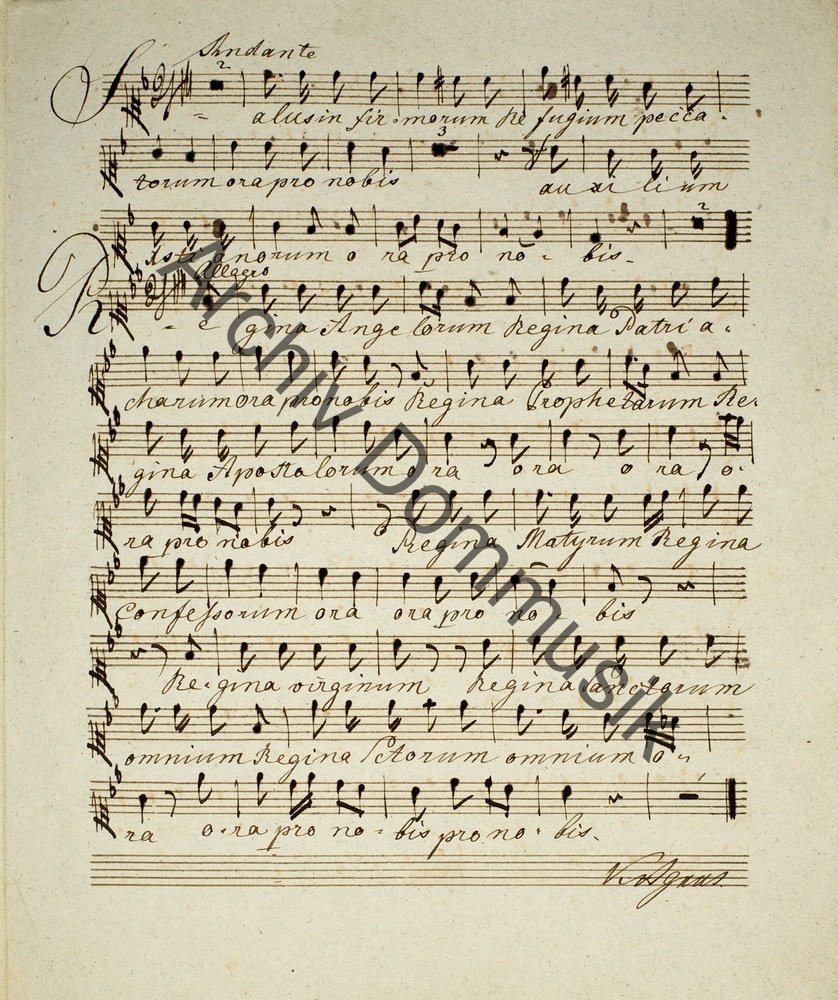 Andante
2
S = alus in fir = morum Re fugium pecca -
3
torum ora pro nobis au xi li um
2
xsti anorum o ra pro no = bis -
Allegro
R - e gina Ange lorum Regina Patri a -
charum ora pro nobis Regina Prophetarum Re =
gina Apostolorum o ra o ra o ra o -
ra pro nobis Regina Matyrum Regina
Confessorum ora ora pro no bis
Re = gina virginum Regina Sanctorum
omnium Regina Sctorum omnium o =
ra o = ra pro no = bis pro no = bis -
Archiv Dommusik